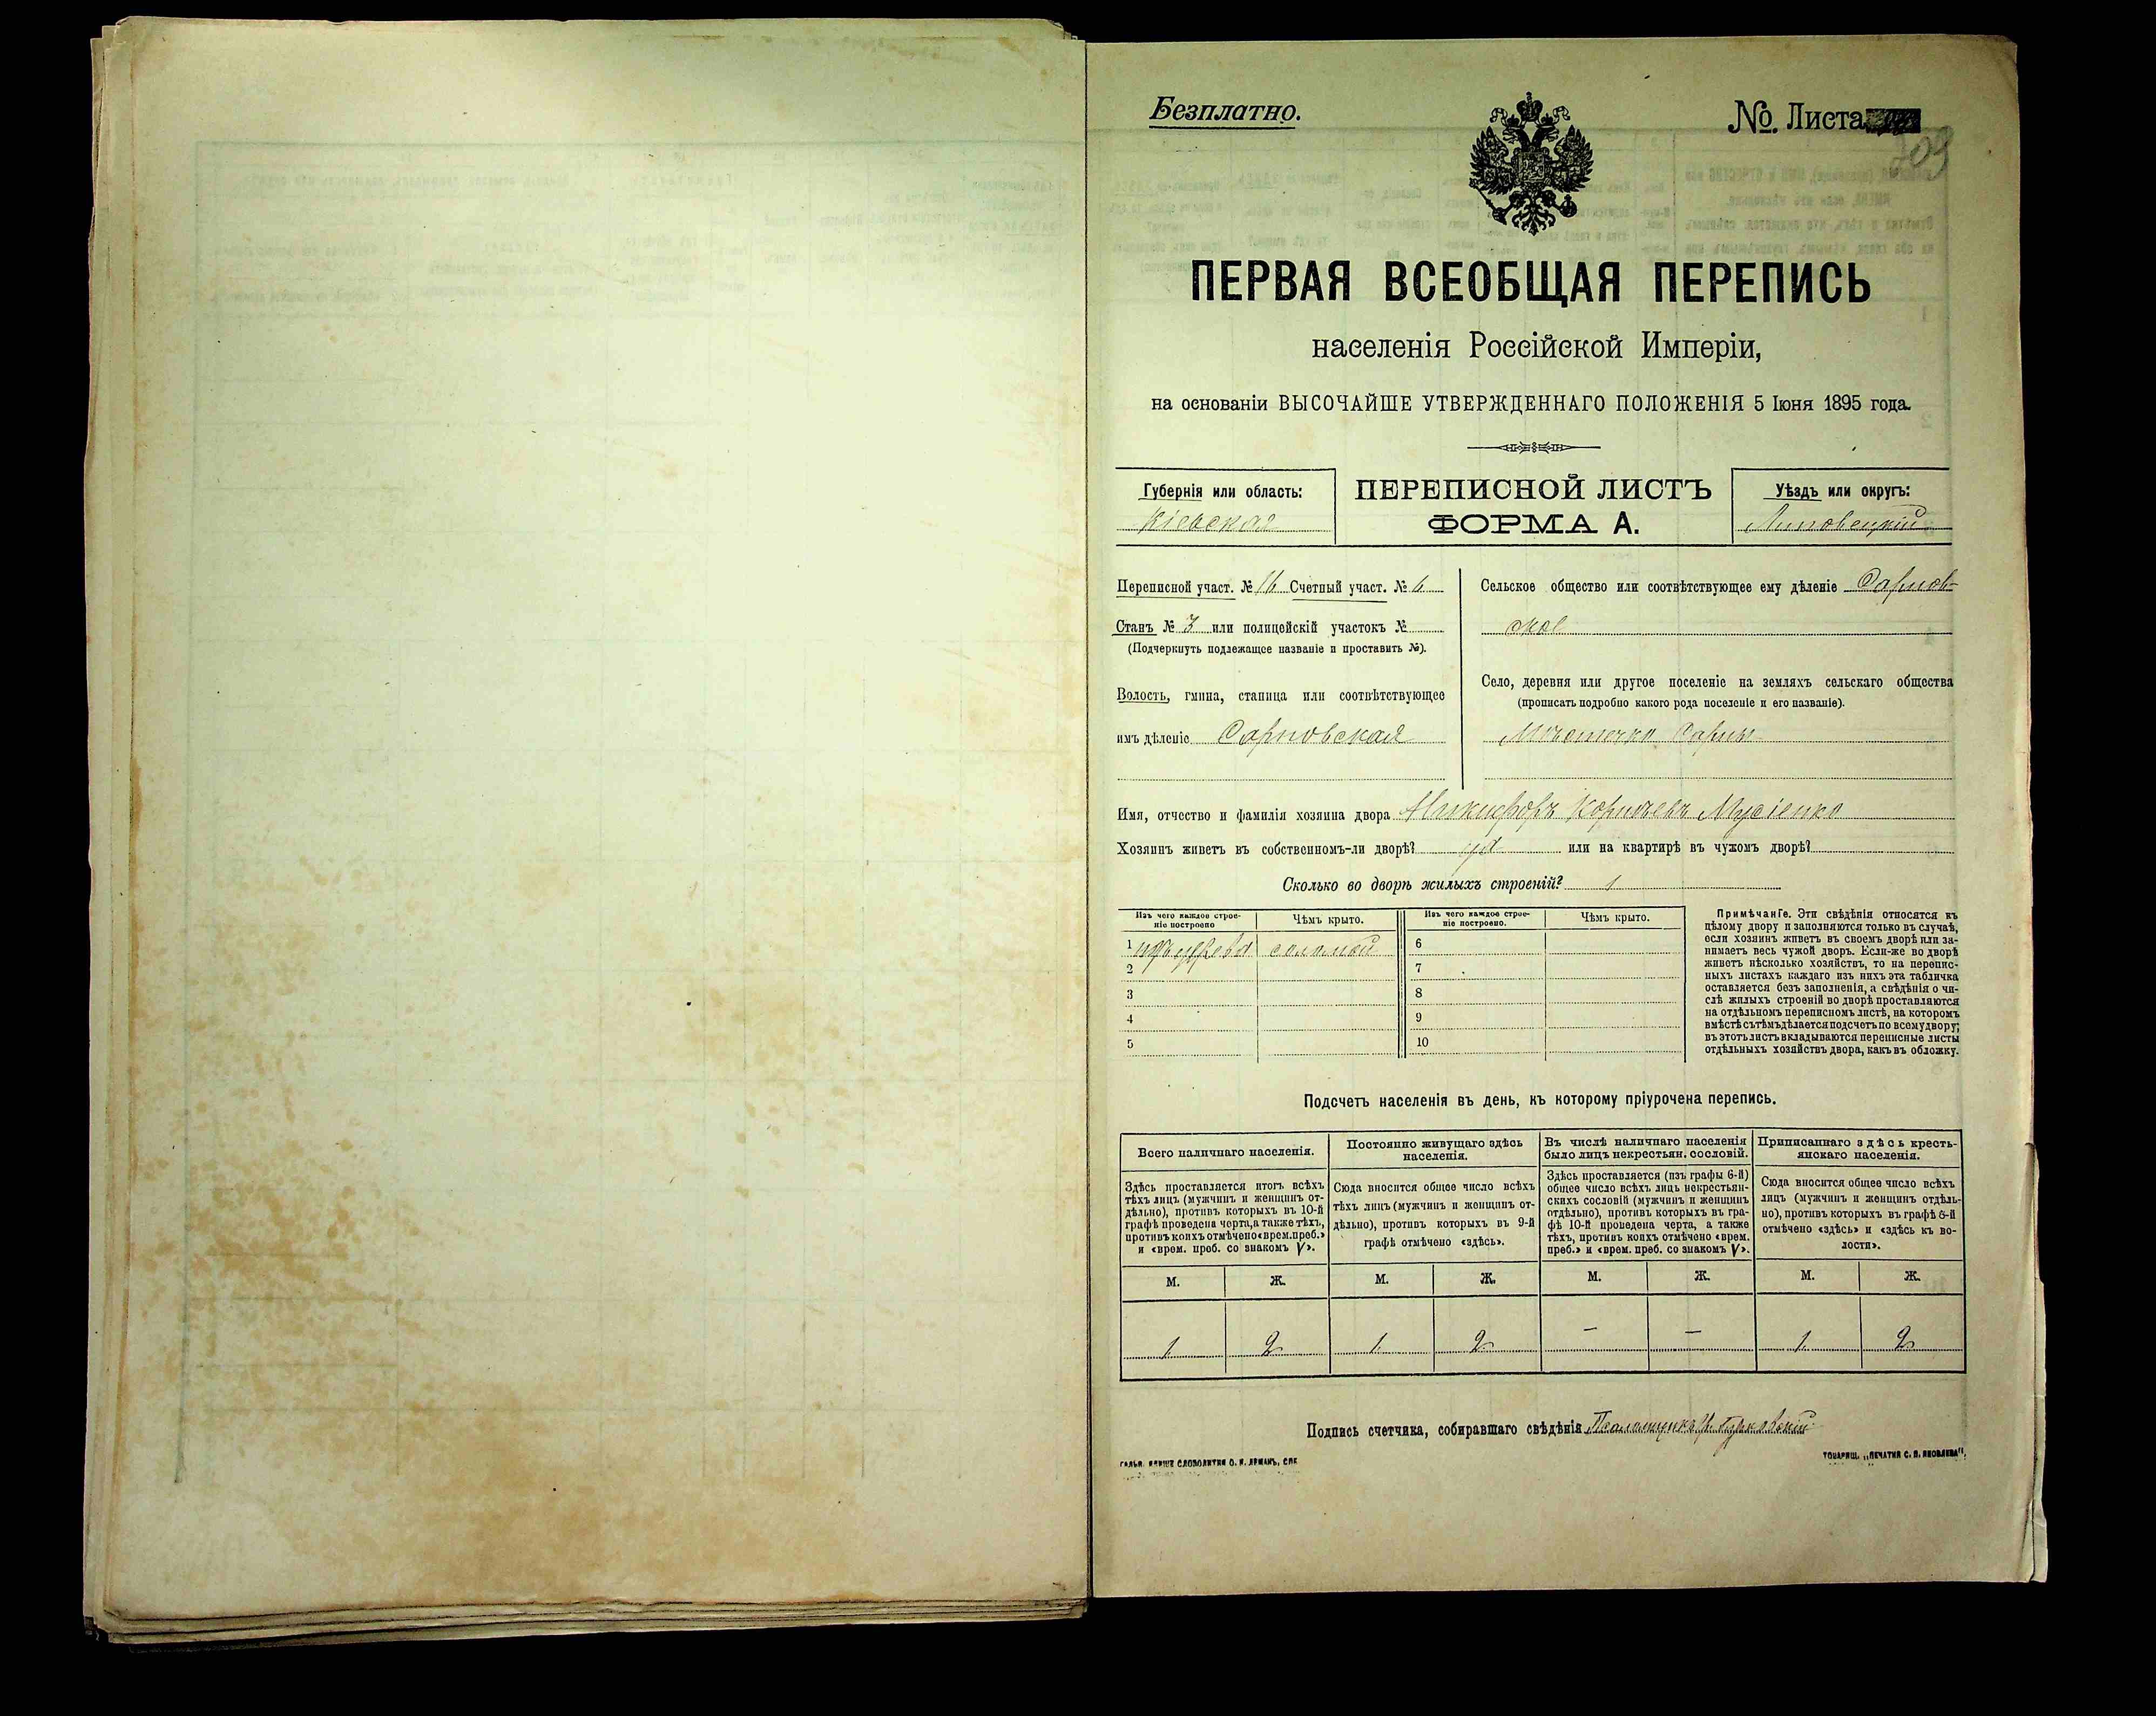 Безплатно.
№. Листа
709
ПЕРВАЯ ВСЕОБЩАЯ ПЕРЕПИСЬ
населенія Россійской Имперіи,
на основаніи ВЫСОЧАЙШЕ УТВЕРЖДЕННАГО ПОЛОЖЕНІЯ 5 Іюня 1895 года.
Губернія или область:
Кіевская
ПЕРЕПИСНОЙ ЛИСТЪ
ФОРМА А.
Уѣздъ или округъ:
Липовецкій
Переписной участ. № 16 Счетный участ. № 6
Станъ № 3 или полицейскій участокъ №
(Подчеркнуть подлежащее названіе и проставить №).
Волость, гмина, станица или соотвѣтствующее
имъ дѣленіе Сарновская
Сельское общество или соотвѣтствующее ему дѣленіе Сарнов-
ское
Село, деревня или другое поселеніе на земляхъ сельскаго общества
(прописать подробно какого рода поселеніе и его названіе).
Мѣстечко Сарны
Имя, отчество и фамилія хозяина двора Никифоръ Корнѣевъ Мусіенко
Хозяинъ живетъ въ собственномъ-ли дворѣ? да или на квартирѣ въ чужомъ дворѣ?
Сколько во дворѣ жилыхъ строеній? 1
Изъ чего каждое строе-
ніе построено
Чѣмъ крыто.
Изъ чего каждое строе-
ніе построено.
Чѣмъ крыто.
1 изъ дерева соломой
2
3
4
5
6
7
8
9
10
Примѣчаніе. Эти свѣдѣнія относятся къ
цѣлому двору и заполняются только въ случаѣ,
если хозяинъ живетъ въ своемъ дворѣ или за-
нимаетъ весь чужой дворъ. Если-же во дворѣ
живетъ нѣсколько хозяйствъ, то на перепис-
ныхъ листахъ каждаго изъ нихъ эта табличка
оставляется безъ заполненія, а свѣдѣнія о чи-
слѣ жилыхъ строеній во дворѣ проставляются
на отдѣльномъ переписномъ листѣ, на которомъ
вмѣстѣ съ тѣмъ дѣлается подсчетъ по всему двору;
въ этотъ листъ вкладываются переписные листы
отдѣльныхъ хозяйствъ двора, какъ въ обложку.
Подсчетъ населенія въ день, къ которому пріурочена перепись.
Всего наличнаго населенія.
Здѣсь проставляется итогъ всѣхъ
тѣхъ лицъ (мужчинъ и женщинъ от-
дѣльно), противъ которыхъ въ 10-й
графѣ проведена черта, а также тѣхъ,
противъ коихъ отмѣчено «врем. преб.»
и «врем. преб. со знакомъ V».
Постоянно живущаго здѣсь
населенія.
Сюда вносится общее число всѣхъ
тѣхъ лицъ (мужчинъ и женщинъ от-
дѣльно), противъ которыхъ въ 9-й
графѣ отмѣчено «здѣсь».
Въ числѣ наличнаго населенія
было лицъ некрестьян. сословій.
Здѣсь проставляется (изъ графы 6-й)
общее число всѣхъ лицъ некрестьян-
скихъ сословій (мужчинъ и женщинъ
отдѣльно), противъ которыхъ въ гра-
фѣ 10-й проведена черта, а также
тѣхъ, противъ коихъ отмѣчено «врем.
преб.» и «врем. преб. со знакомъ V».
Приписаннаго здѣсь кресть-
янскаго населенія.
Сюда вносится общее число всѣхъ
лицъ (мужчинъ и женщинъ отдѣль-
но), противъ которыхъ въ графѣ 6-й
отмѣчено «здѣсь» и «здѣсь къ во-
лости».
М. Ж. М. Ж. М. Ж. М. Ж.
1 2 1 2 – – 1 2
Подпись счетчика, собиравшаго свѣдѣнія Псаломщикъ
СЛОВОЛИТНЯ О. И. ЛЕМАНЪ, СПБ
ТОВАРИЩ. „ПЕЧАТНЯ С. П. ЯКОВЛЕВА“.